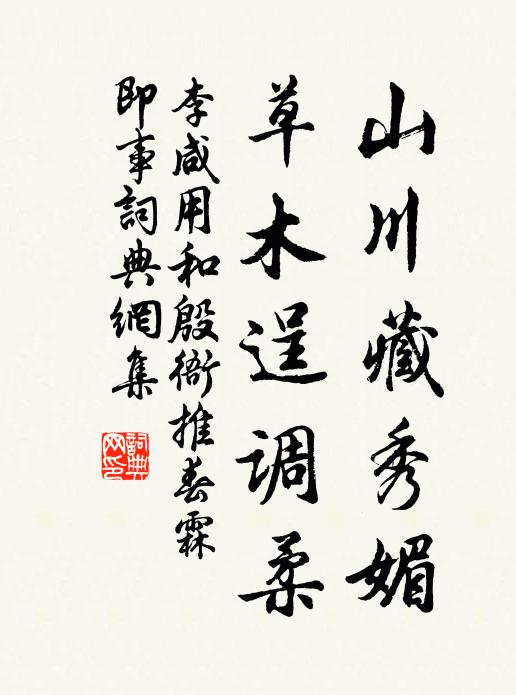 山川藏秀媚
草木逞調柔
李咸用和殷衙推春霖
即事詞典網集
詞典
网印